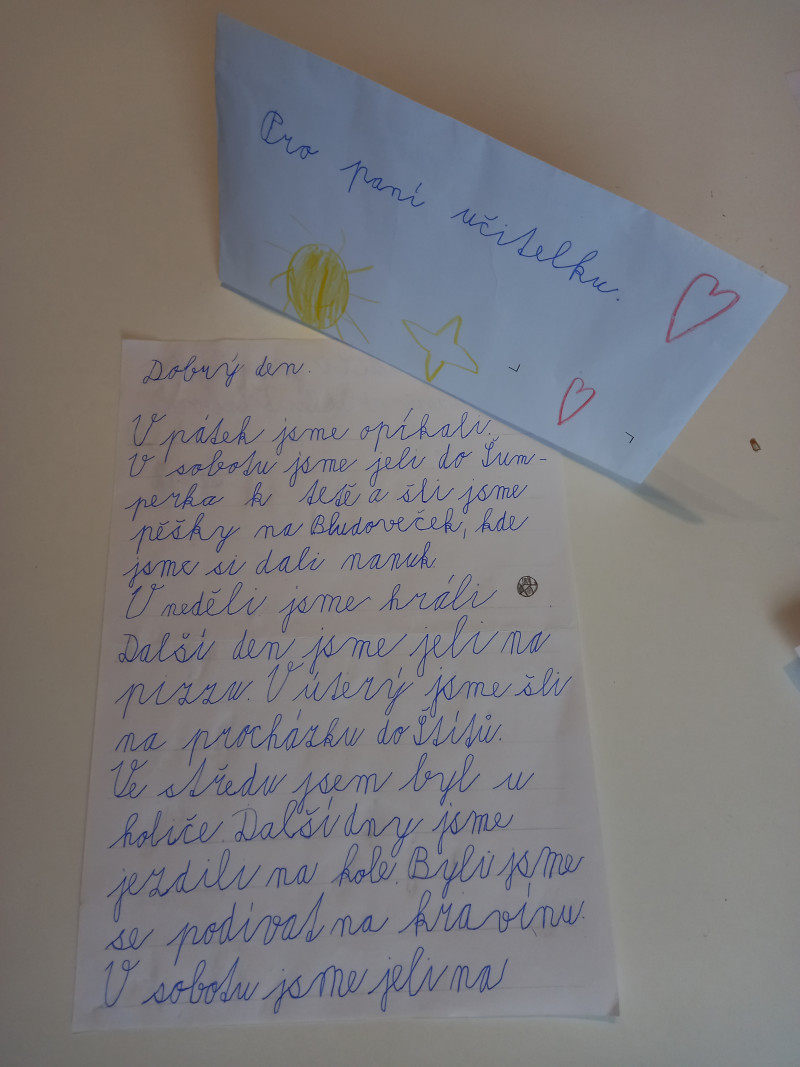 Pro paní učitelku.
Dobrý den.
V pátek jsme opíkali.
V sobotu jsme jeli do Šum-
perka k tetě a šli jsme
pěšky na Bludoveček, kde
jsme si dali nanuk
V neděli jsme hráli
Další den jsme jeli na
pizzu. V úterý jsme šli
na procházku do Štítů.
Ve středu jsem byl u
holiče. Další dny jsme
jezdili na kole. Byli jsme
se podívat na kravínu.
V sobotu jsme jeli na